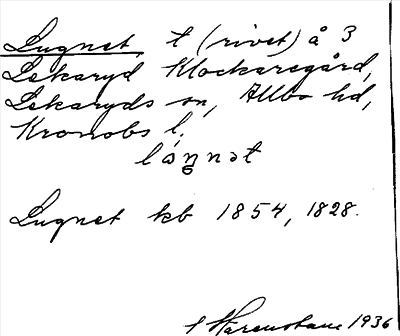 Lugnet, t (rivet) å 3
Lekaryd Klockaregård,
Lekaryds sn, Allbo hd,
Kronobs l.
Lugnet kb 1854, 1828.
1936